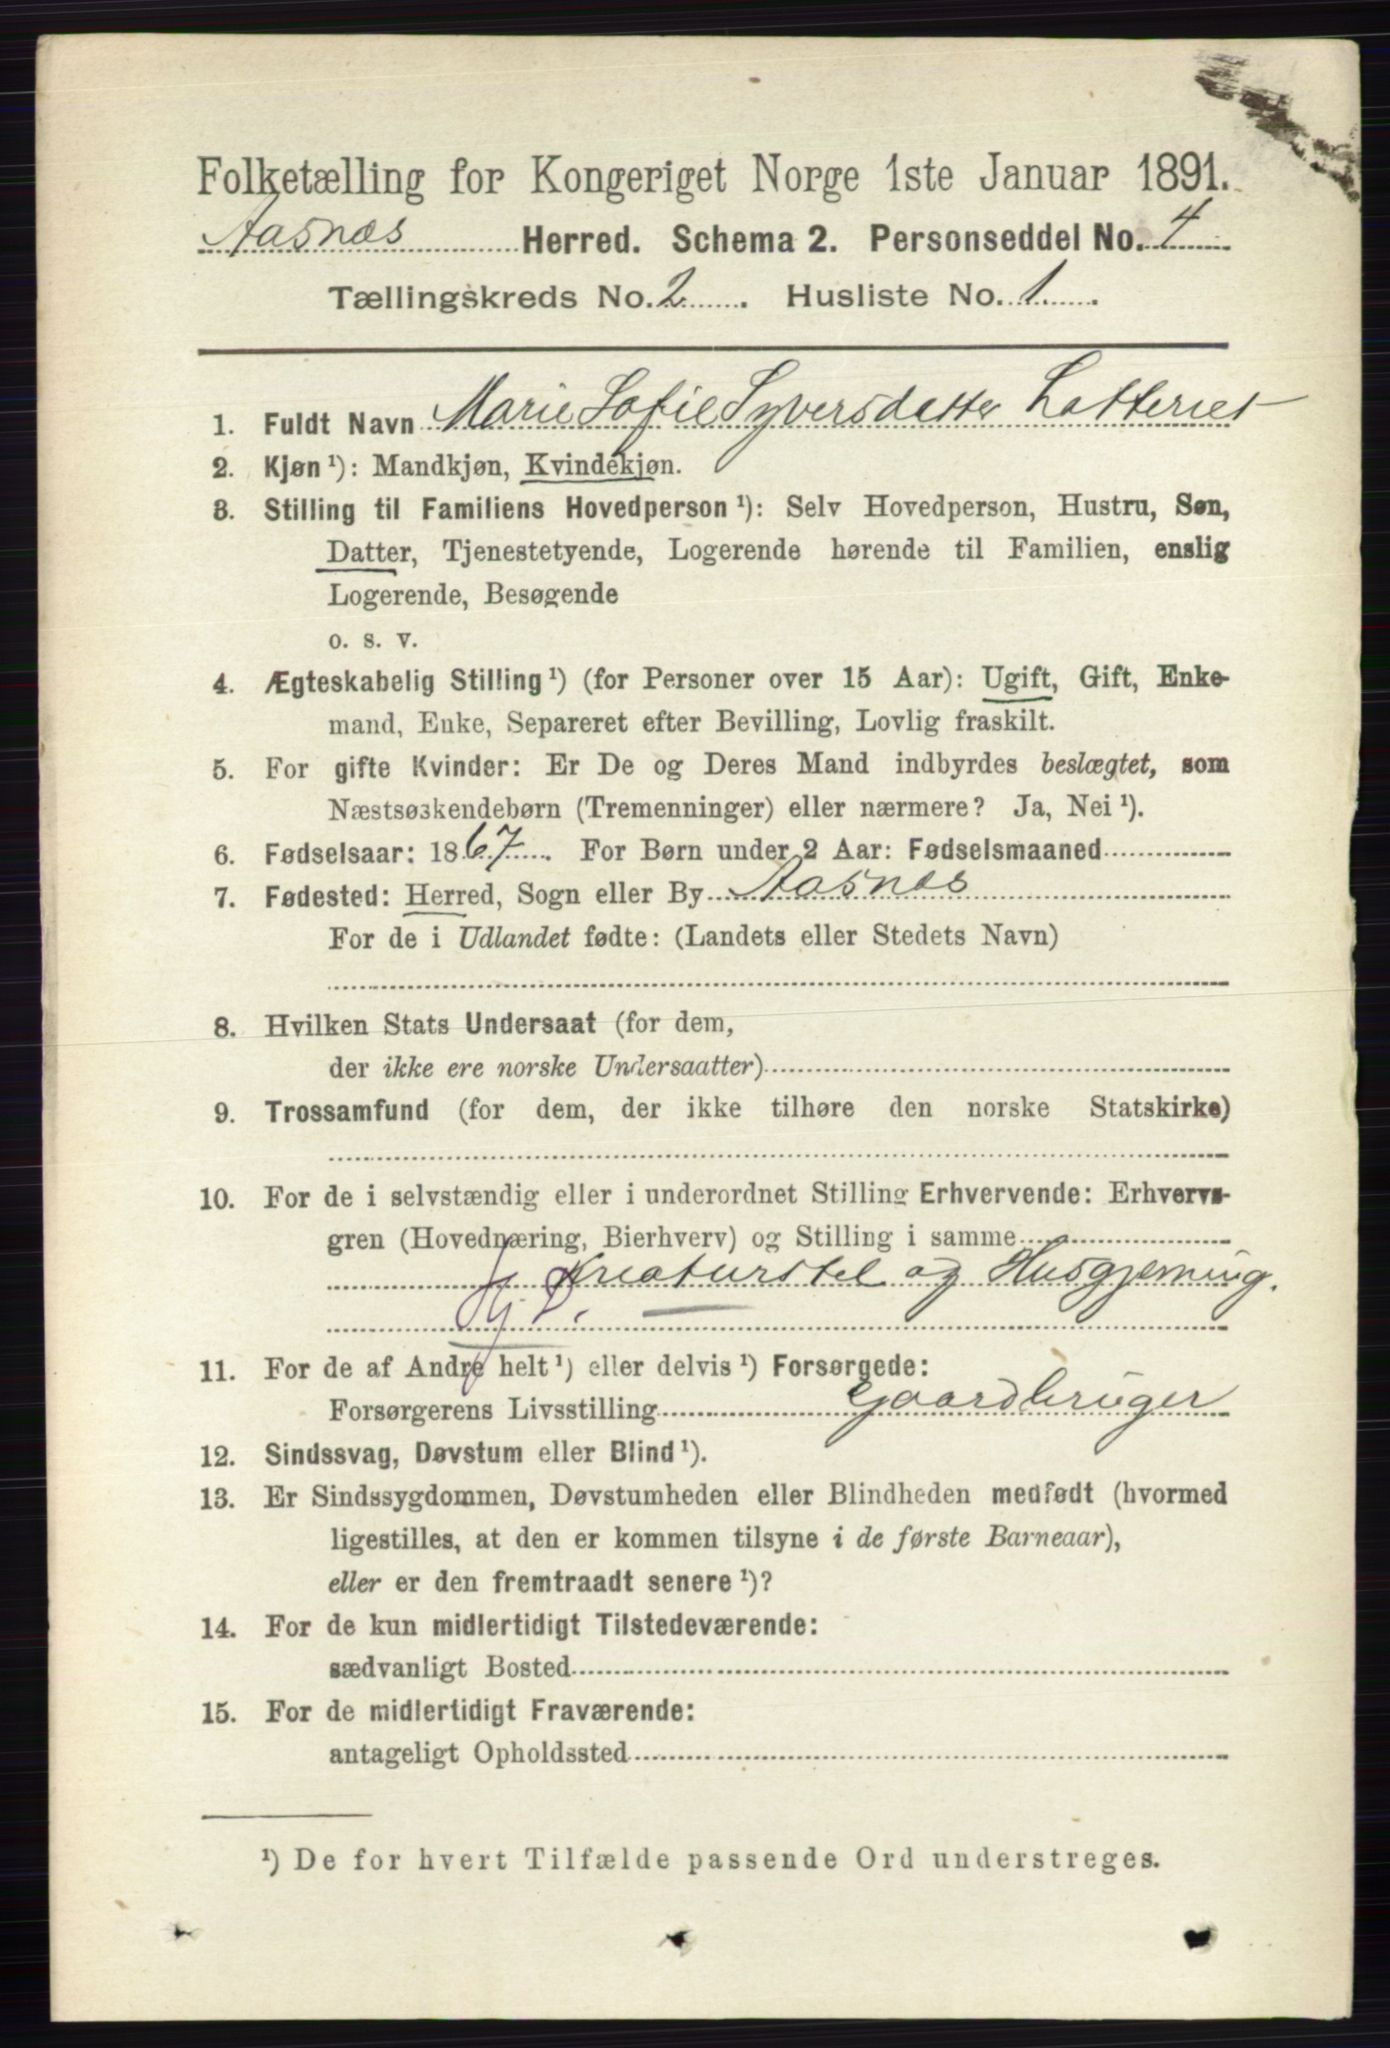 Folketælling for Kongeriget Norge 1ste Januar 1891.
Aasnæs Herred. Schema 2. Personseddel No. 4
Tællingskreds No. 2 . Husliste No. 1 .
1. Fuldt Navn Marie Sofie Syversdatter
2. Kjøn ¹): Mandkjøn, Kvindekjøn.
3. Stilling til Familiens Hovedperson ¹): Selv Hovedperson, Hustru, Søn,
Datter, Tjenestetyende, Logerende hørende til Familien, enslig
Logerende, Besøgende
o. s. v.
4. Ægteskabelig Stilling ¹) (for Personer over 15 Aar): Ugift, Gift, Enke-
mand, Enke, Separeret efter Bevilling, Lovlig fraskilt.
5. For gifte Kvinder: Er De og Deres Mand indbyrdes beslægtet, som
Næstsøskendebørn (Tremenninger) eller nærmere? Ja, Nei ¹).
6. Fødselsaar: 1867 . For Børn under 2 Aar: Fødselsmaaned
7. Fødested: Herred, Sogn eller By Aasnæs
For de i Udlandet fødte: (Landets eller Stedets Navn)
8. Hvilken Stats Undersaat (for dem,
der ikke ere norske Undersaatter)
9. Trossamfund (for dem, der ikke tilhøre den norske Statskirke)
10. For de i selvstændig eller i underordnet Stilling Erhvervende: Erhvervs-
gren (Hovednæring, Bierhverv) og Stilling i samme
Kreaturstel og Husgjerning.
11. For de af Andre helt ¹) eller delvis ¹) Forsørgede:
Forsørgerens Livsstilling Gaardbruger
12. Sindssvag, Døvstum eller Blind ¹).
13. Er Sindssygdommen, Døvstumheden eller Blindheden medfødt (hvormed
ligestilles, at den er kommen tilsyne i de første Barneaar),
eller er den fremtraadt senere ¹)?
14. For de kun midlertidigt Tilstedeværende:
sædvanligt Bosted
15. For de midlertidigt Fraværende:
antageligt Opholdssted
¹) De for hvert Tilfælde passende Ord understreges.